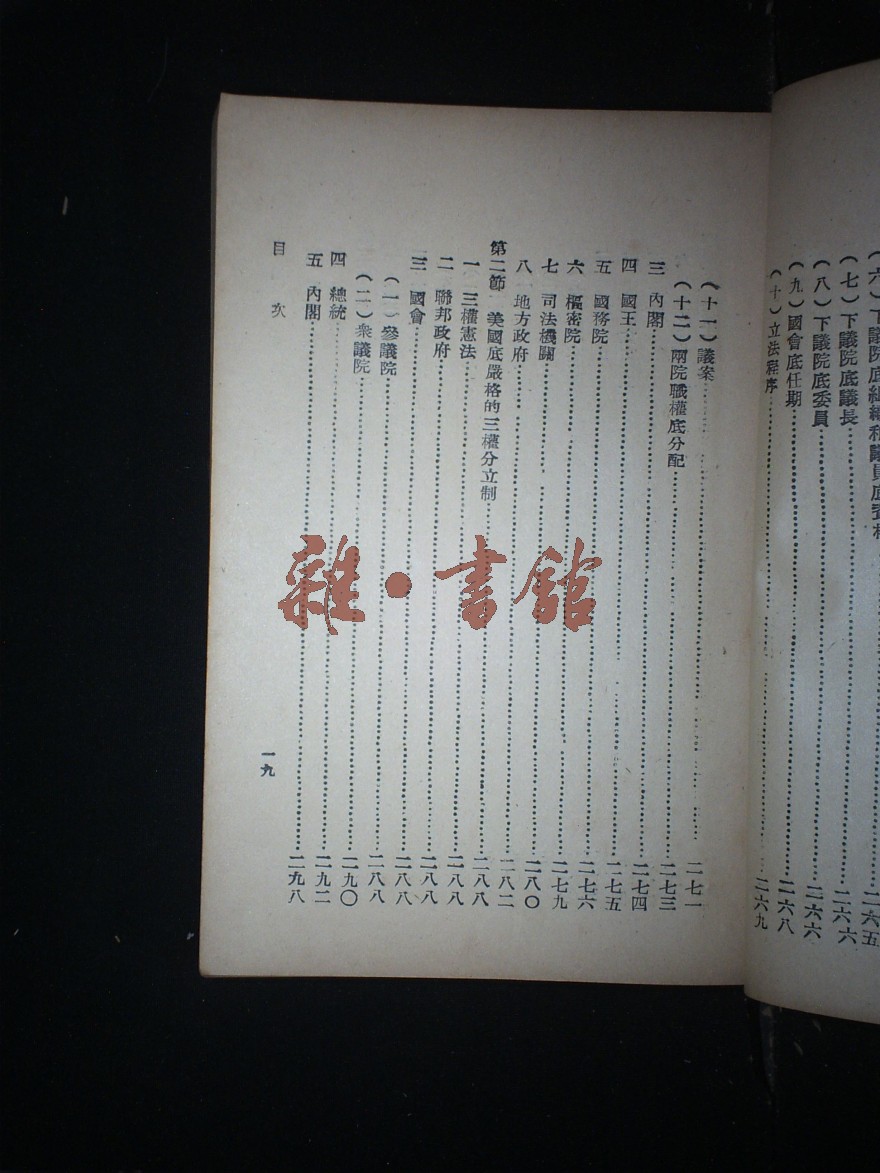 (六)下議院底組織和議員底資格……二六五
(七)下議院底議長……二六六
(八)下議院底委員……二六六
(九)國會底任期……二六八
(十)立法程序……二六九
(十一)議案……二七一
(十二)兩院職權底分配……二七三
三 內閣……二七四
四 國王……二七五
五 國務院……二七六
六 樞密院……二七九
七 司法機關……二八〇
八 地方政府……二八二
第二節 美國底嚴格的三權分立制……二八八
一 三權憲法……二八八
二 聯邦政府……二八八
三 國會……二八八
(一)參議院……二八八
(二)衆議院……二九〇
四 總統……二九二
五 內閣……二九八
目次
一九
雜·書館